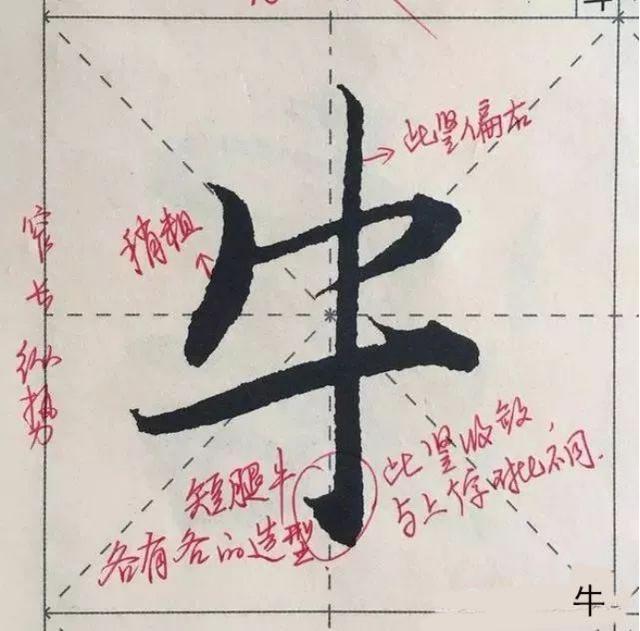 此竖偏右
稍粗
窄长纵势
牛
短腿牛
各有各的造型.
此竖收敛,
与上字对比不同.
牛